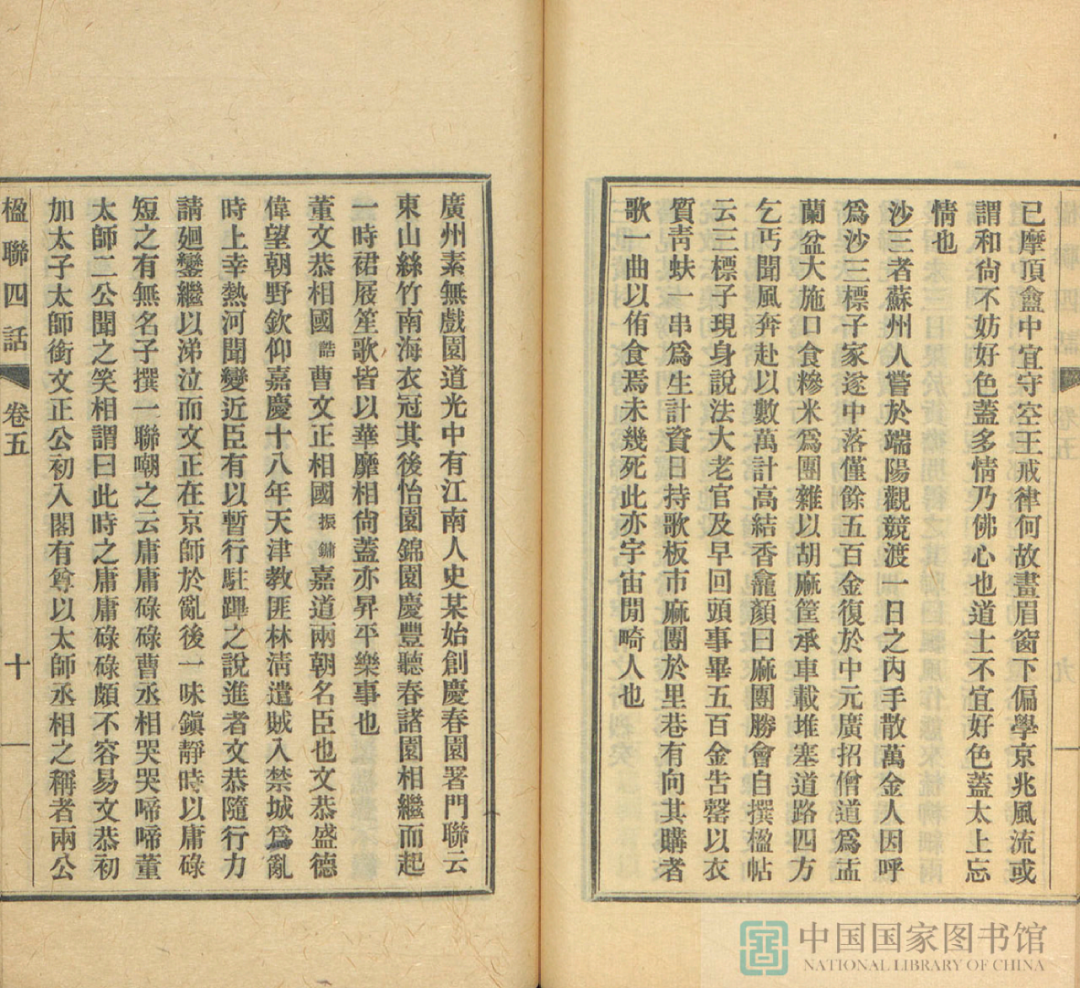 已摩頂盦中宜守空王戒律何故畫眉窗下偏學京兆風流或
謂和尙不妨好色蓋多情乃佛心也道士不宜好色蓋太上忘
情也
沙三者蘇州人嘗於端陽觀競渡一日之內手散萬金人因呼
爲沙三標子家遂中落僅餘五百金復於中元廣招僧道爲盂
蘭盆大施口食糝米爲團雜以胡麻筐承車載堆塞道路四方
乞丐聞風奔赴以數萬計高結香龕顏曰麻團勝會自撰楹帖
云三標子現身說法大老官及早回頭事畢五百金告罄以衣
質靑蚨一串爲生計資日持歌板市麻團於里巷有向其購者
歌一曲以侑食焉未幾死此亦宇宙閒畸人也
廣州素無戲園道光中有江南人史某始創慶春園署門聯云
東山絲竹南海衣冠其後怡園錦園慶豐聽春諸園相繼而起
一時裙屐笙歌皆以華靡相尙蓋亦昇平樂事也
董文恭相國誥曹文正相國振鏞嘉道兩朝名臣也文恭盛德
偉望朝野欽仰嘉慶十八年天津教匪林淸遣賊入禁城爲亂
時上幸熱河聞變近臣有以暫行駐蹕之說進者文恭隨行力
請廻鑾繼以涕泣而文正在京師於亂後一味鎭靜時以庸碌
短之有無名子撰一聯嘲之云庸庸碌碌曹丞相哭哭啼啼董
太師二公聞之笑相謂曰此時之庸庸碌碌頗不容易文恭初
加太子太師銜文正公初入閣有尊以太師丞相之稱者兩公
楹聯四話 卷五 十
中国国家图书馆
NATIONAL LIBRARY OF CHINA